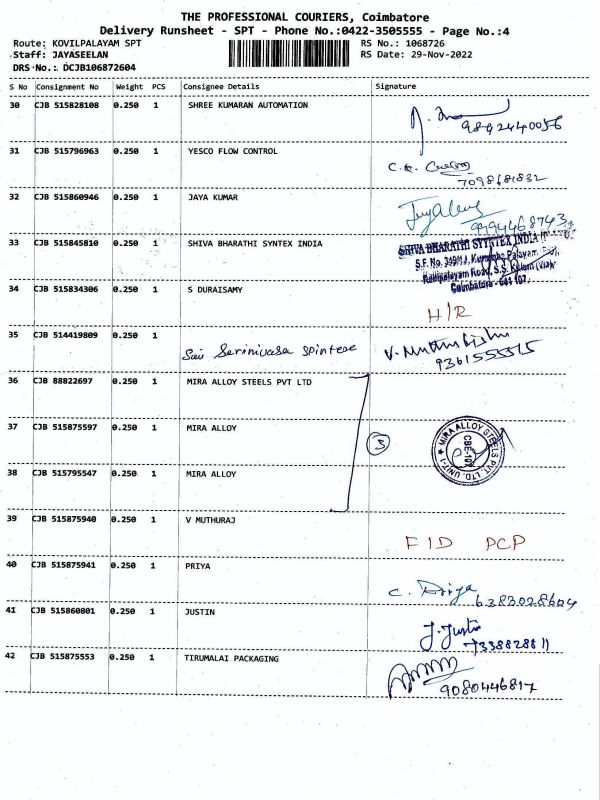 THE PROFESSIONAL COURIERS, Coimbatore
Delivery Runsheet - SPT - Phone No.:0422-3505555 - Page No.:4
Route: KOVILPALAYAM SPT RS No.: 1068726
Staff: JAYASEELAN RS Date: 29-Nov-2022
DRS No.: DCJB106872604
S No Consignment No Weight PCS Consignee Details Signature
30 CJB 515828108 0.250 1 SHREE KUMARAN AUTOMATION
9892440056
31 CJB 515796963 0.250 1 YESCO FLOW CONTROL
7098681832
32 CJB 515860946 0.250 1 JAYA KUMAR
9994468743
33 CJB 515845810 0.250 1 SHIVA BHARATHI SYNTEX INDIA
SHIVA BHARATHI SYNTEX INDIA
S.F. No.
Kallipalayam Road, S.S. Kulam (Via)
Coimbatore - 641 107.
34 CJB 515834306 0.250 1 S DURAISAMY
H/R
35 CJB 514419809 0.250 1
Sai Serinivasa Spintese
9361555515
36 CJB 88822697 0.250 1 MIRA ALLOY STEELS PVT LTD
37 CJB 515875597 0.250 1 MIRA ALLOY
3
MIRA ALLOY STEELS PVT. LTD. UNIT-1
CBE-107
38 CJB 515795547 0.250 1 MIRA ALLOY
39 CJB 515875940 0.250 1 V MUTHURAJ
FID PCP
40 CJB 515875941 0.250 1 PRIYA
C. Priya
6383028604
41 CJB 515860801 0.250 1 JUSTIN
J. Justin
733882881
42 CJB 515875553 0.250 1 TIRUMALAI PACKAGING
9080446817